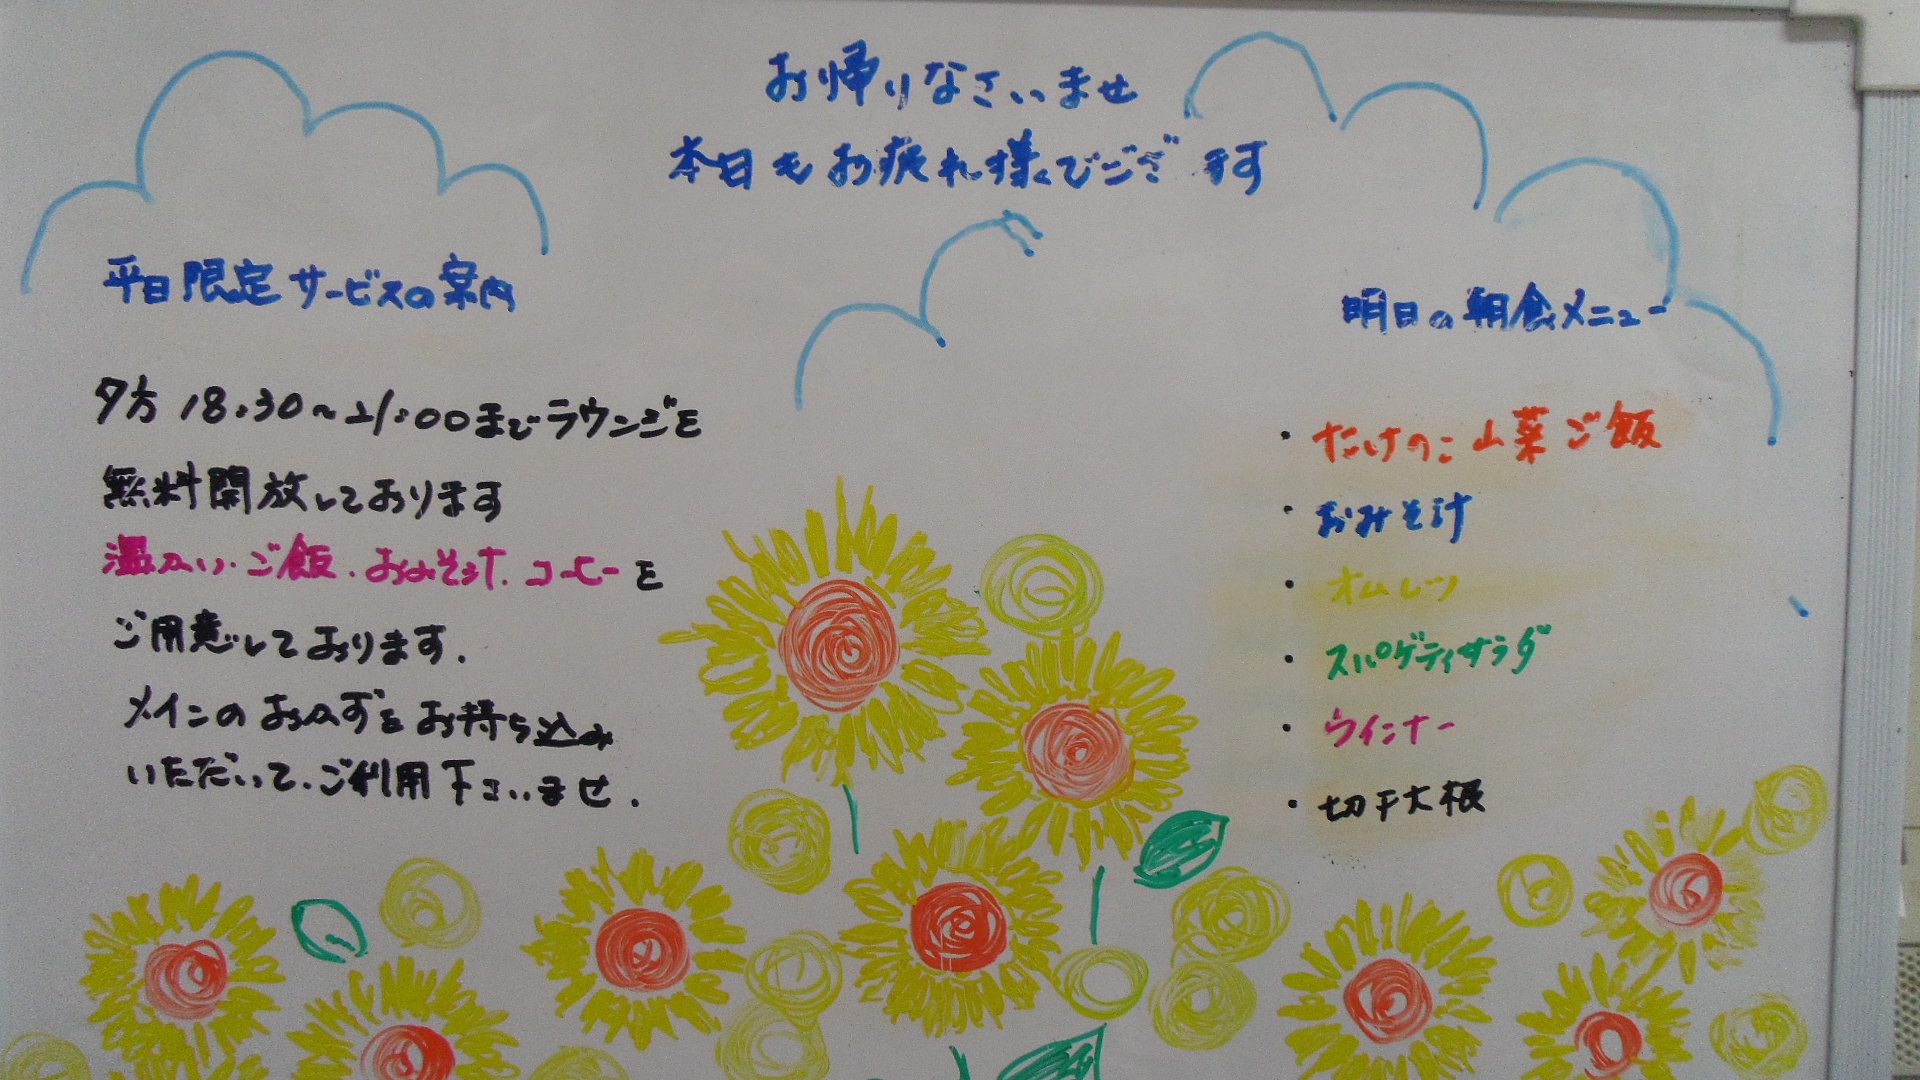 お帰りなさいませ
本日もお疲れ様でございます
平日限定サービスの案内
夕方18:30～21:00までラウンジを
無料開放しております
温かい・ご飯・おみそ汁・コーヒーを
ご用意しております.
メインのおかずをお持ち込み
いただいて、ご利用下さいませ.
明日の朝食メニュー
・たけのこ山菜ご飯
・おみそ汁
・オムレツ
・スパゲティサラダ
・ウインナー
・切干大根